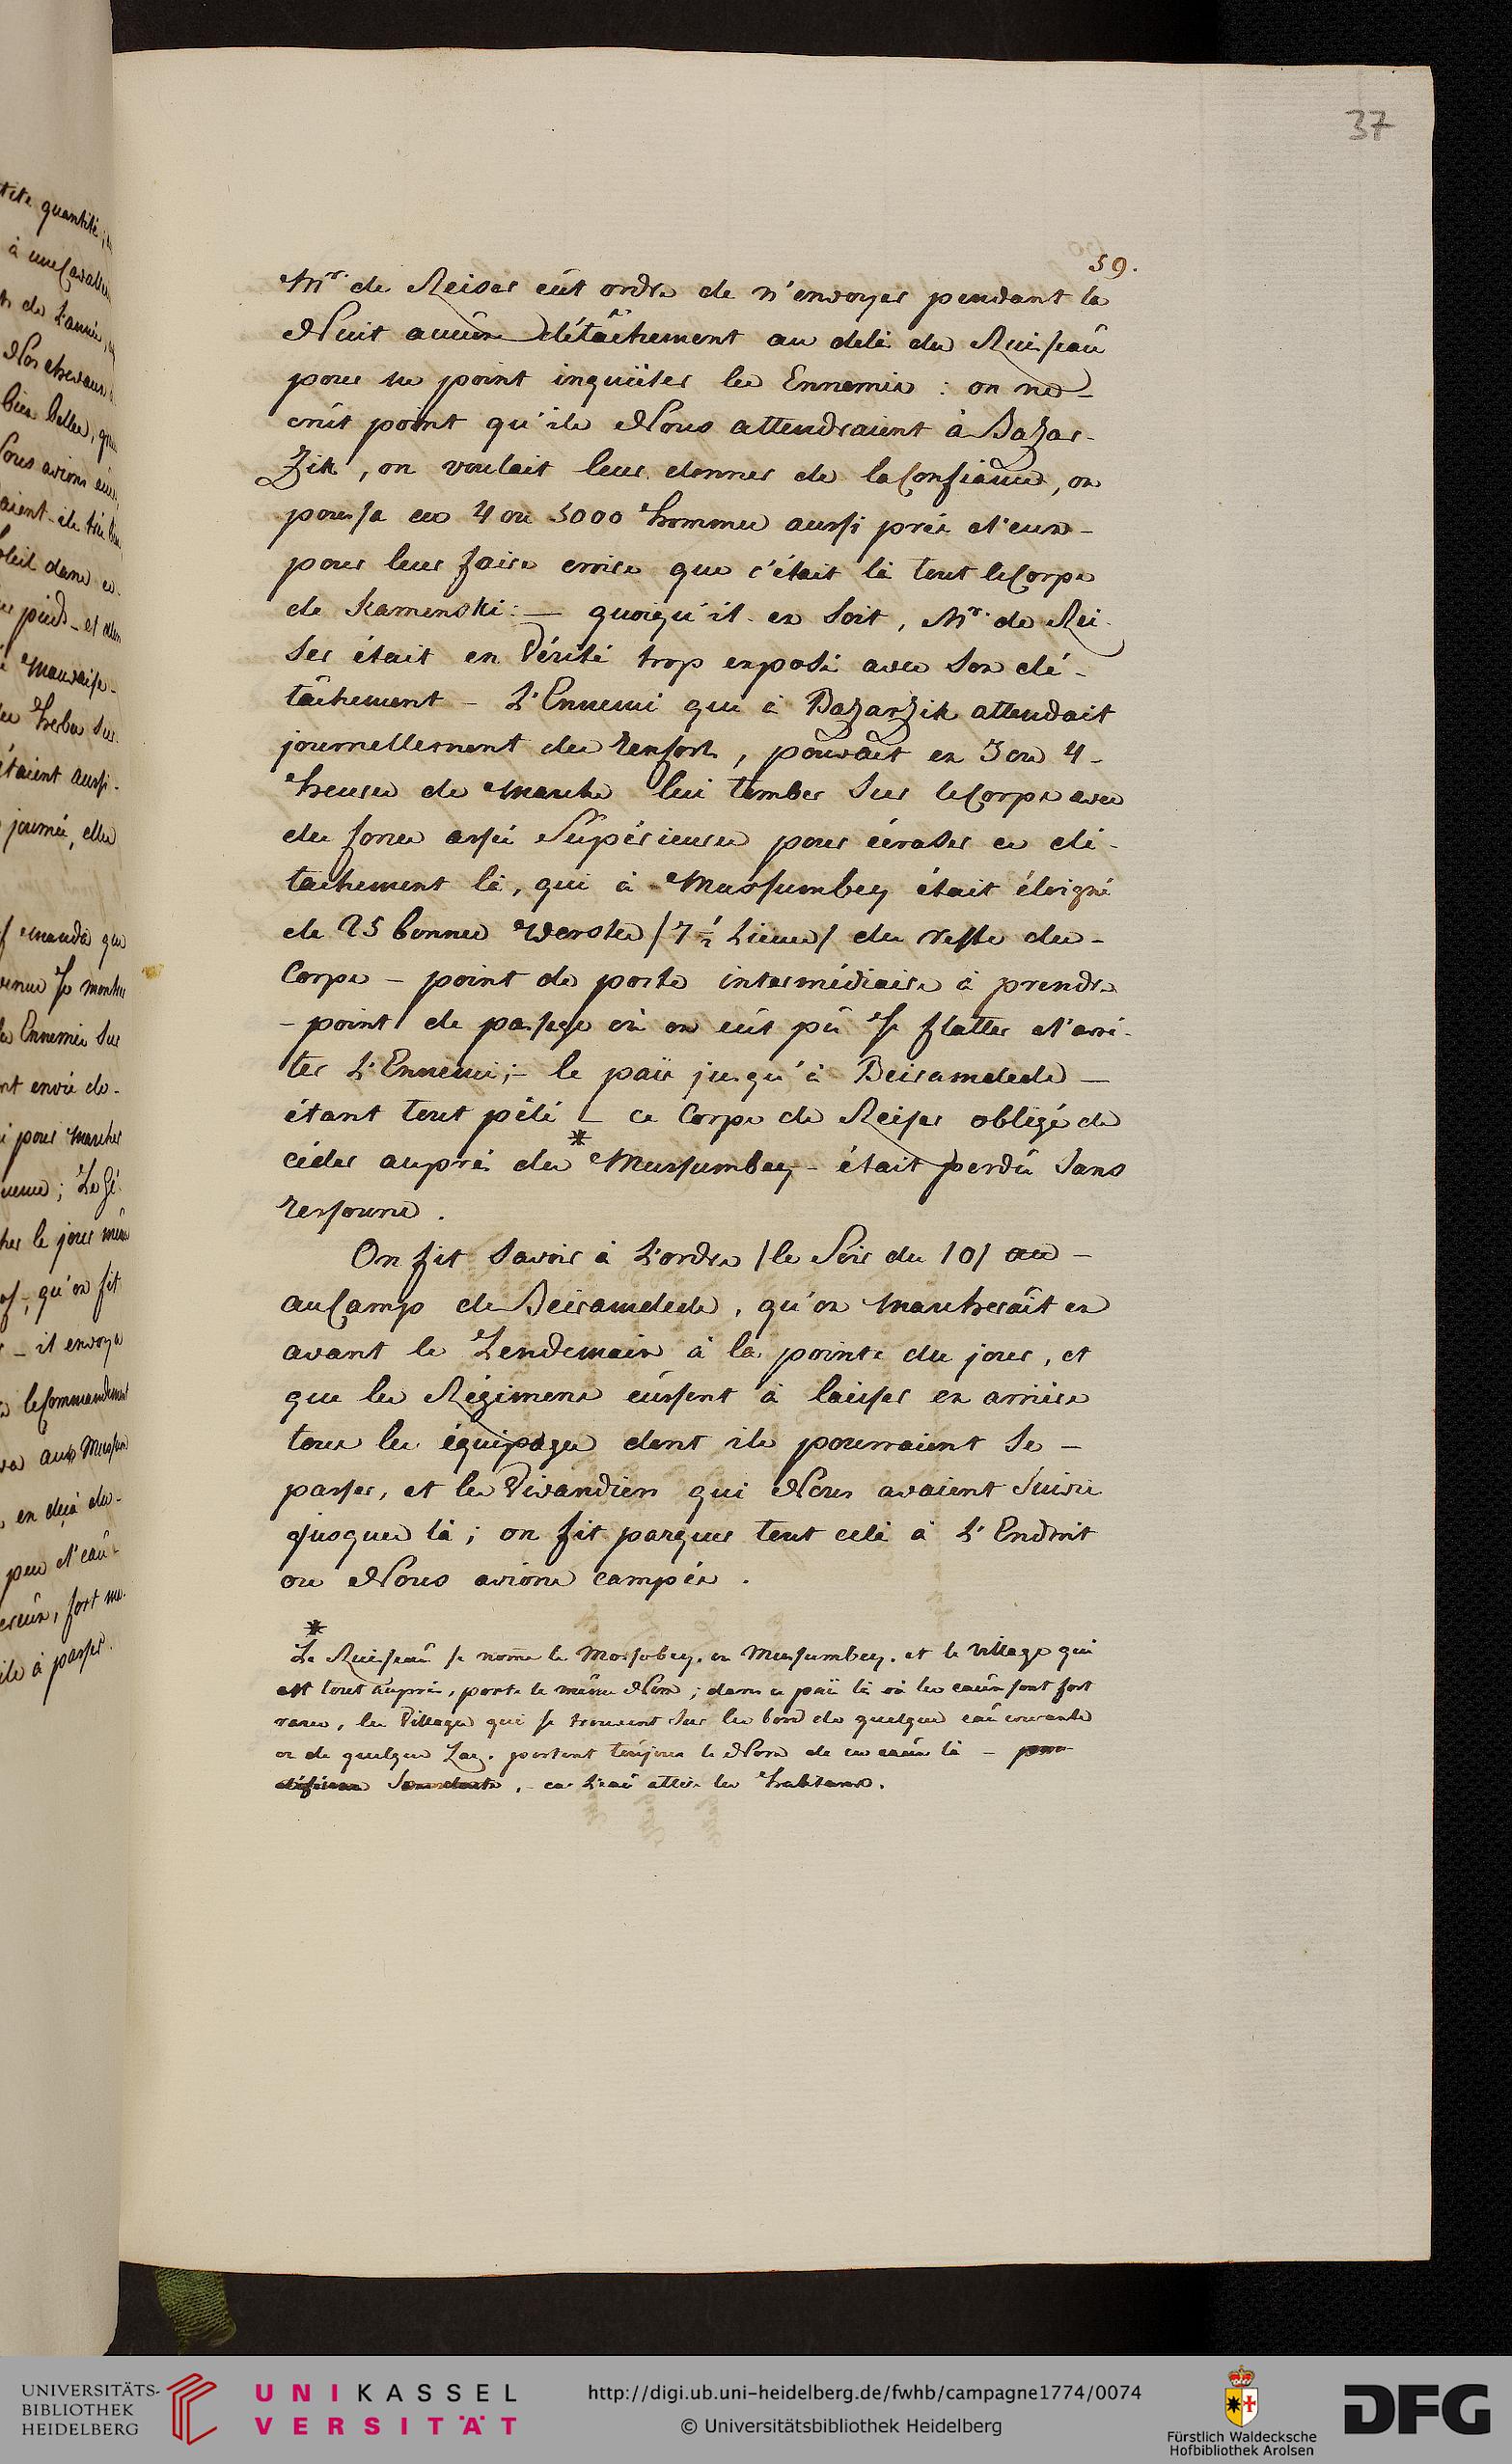 37
59.
Mr. de Reiser eût ordre de n'envoyer pendant la
Nuit aucûn détâchement au delà du Ruisseaû
pour ne point inquiéter les Ennemis : on ne
crût point qu'ils Nous attendraient à Bazar-
Zik, on voulait leur donner de la Confiance, on
poussa ces 4 ou 5000 hommes aussi près d'eux
pour leur faire croire que c'était là tout le Corps
de Kamenski : — quoiqu'il en soit, Mr. de Rei-
ser était en Vérité trop exposé avec son dé-
tâchement – L'Ennemi qui à Bazarzik attendait
journellement des renforts, pouvait en 3 ou 4
heures de marche lui tomber sur le Corps avec
des forces assés Supérieures pour écraser ce dé-
tachement là, qui à Mussumbey était éloigné
de 25 bonnes Werstes /7 ½ Lieues/ du reste du
Corps – point de poste intermédiaire à prendre
– point de passage où on eût pû se flatter d'arrê-
ter L'Ennemi; – le païs jusqu'à Beiramdede —
étant tout pêlé – ce Corps de Reiser obligé de
céder auprès du * Mussumbey – était perdû sans
ressource.
On fit savoir à L'ordre /le Soir du 10/ au –
au Camp de Beiramdede, qu'on marcherâit en
avant le Lendemain à la pointe du jour, et
que les Régimens eûssent à laisser en arrière
tous les équipages dont ils pourraient se –
passer, et les Vivandiers qui Nous avaient suivis
jusques là; on fit parquer tout celà à L'Endroit
ou Nous avions campés.
*
Le Ruisseaû se nome le Mossobey, ou Mussumbey, et le village qui
est tout auprès, porte le même Nom; dans ce païs là où les eaûx sont fort
rares, les Villages qui se trouvent sur les bords de quelque eaû courante
ou de quelque Lac, portent toujours le Nom de ces eaûx là –
sans doute, car L'eaû attire les habitans.
tite quantité,
à une Cavale
Nos chevaux
bien belles, qu
soleil dans ce
pieds – et
mauvaise
herbes sur
étaient aussi
journée, elle
manda que
venue se montrer
les Ennemis sur
nt envie de
pour marcher
; Le Gé
her le jour même
qu'on fit
– il envoya
le Commandement
en deçà du
peu d'eaû
, fort ma
ile à passer.
UNIVERSITÄTS-
BIBLIOTHEK
HEIDELBERG
UNIKASSEL
VERSITÄT
http://digi.ub.uni-heidelberg.de/fwhb/campagne1774/0074
© Universitätsbibliothek Heidelberg
Fürstlich Waldecksche
Hofbibliothek Arolsen
DFG